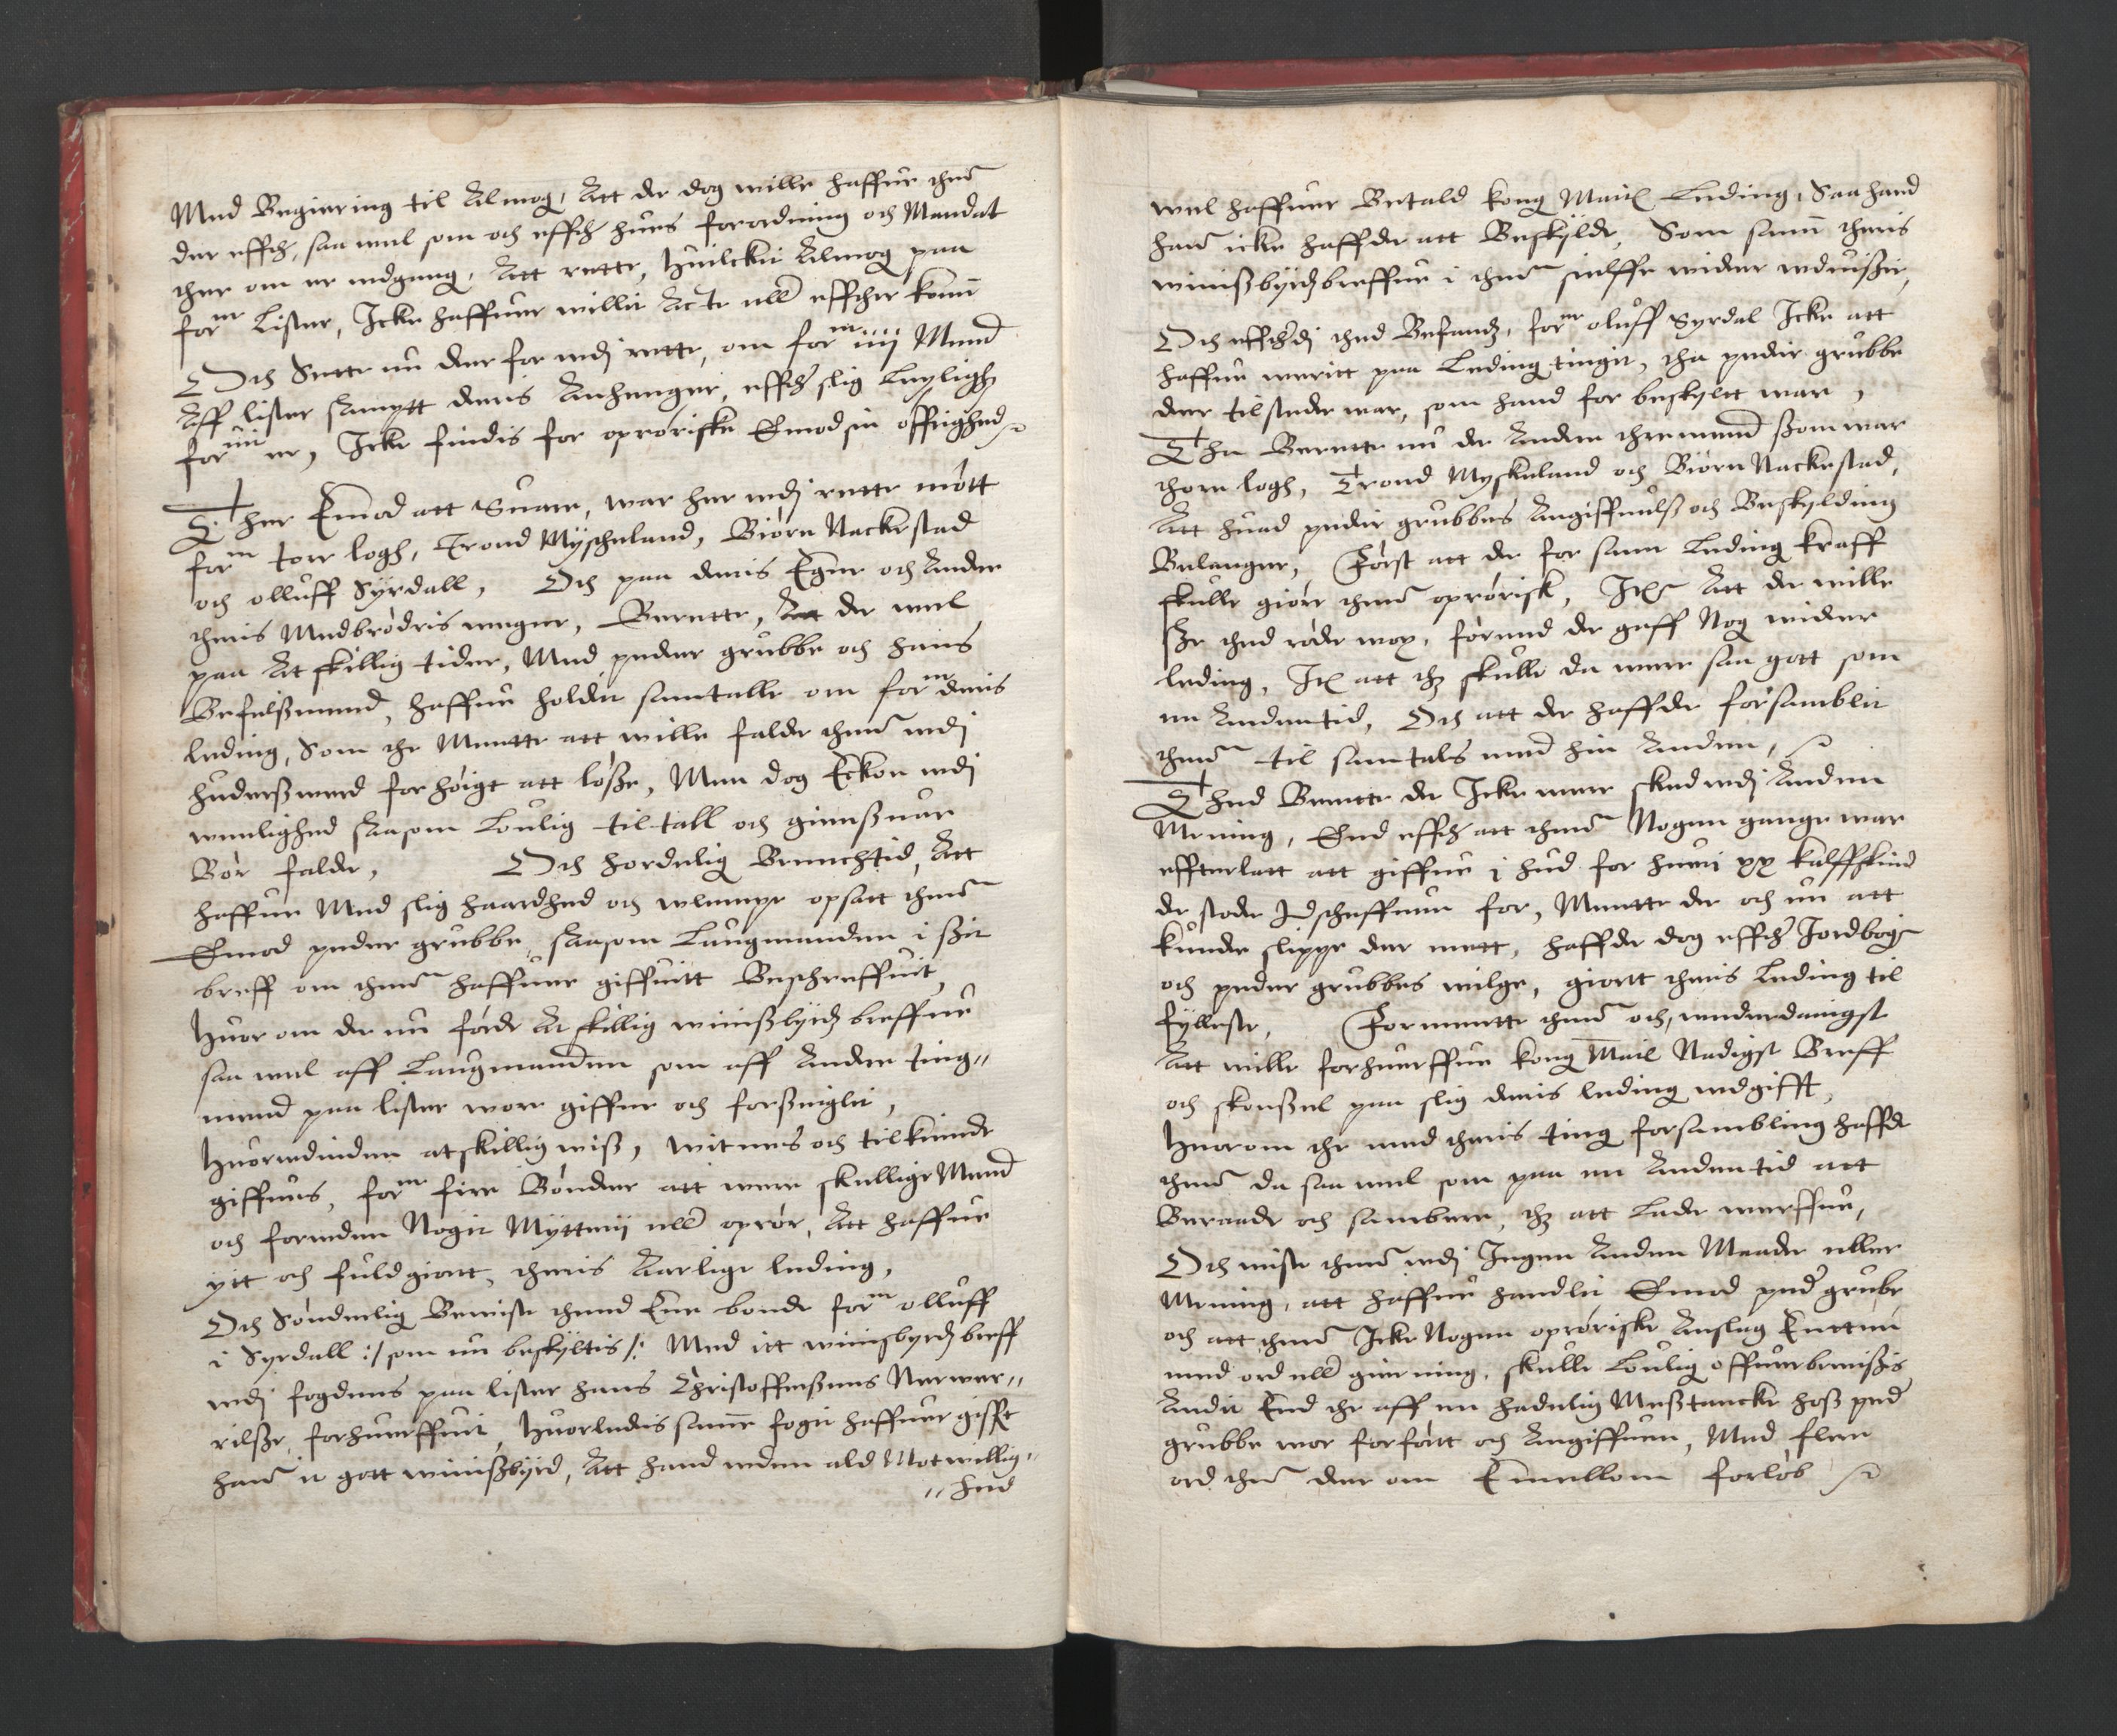 Med Begiering til Almog, Att de dog wille haffue thenn
der effth, saa well som och effth huers forordning och Mandat
ther om er wdgeng, Att rette, Huilckit Almog paa
forne Lister, Icke haffuer willit Acte eller effther komme
Och Sette nu der for wdj rette, om forne iiij Mend
Aff lister sampt deris Anhenger, effther slig Leyligh
forne er, Icke findis for oprøriske Emod sin offrighed
Ther Emod att Suare, war her wdj rette mött
forne tore logh, Trond Myscheland, Biörn Nackestad
och olluff Syrdall, Och paa deris Egne och Andre
theris Medbrödris wegne, Berette, Att de well
paa At skillig tider, Med peder grubbe och hans
Befelßmend, haffue holdit samtalle om forne deris
leding, Som the Meente att wille falde thenn wdj
huderßwerd forhöigt att löße, Men dog Eckon wdj
wenlighed saasom Loulig til tall och gienßuar
Bör falde, Och hordelig Benechtid, Att
haffue Med slig haardhed och wlempe opsatt thenn
Emod peder grubbe, saasom Laugmanden i ßit
breff om thenn haffuer giffuitt Beschreffuit,
Huor om de nu förde At skillig winißbyrdz breffue
saa well aff Laugmanden som aff Andre ting"
mend paa lister wore giffne och forßeiglit,
Huorwdinden atskillig wiß, witnes och tilkiende
giffues, forne fire Bönder att were skellige Mend
och foruden Nogit Mytterij eller oprör, Att haffue
ytt och fuldgiortt, theris Aarlige leding,
Och Sönderlig Beuiste thend Ene bonde forne olluff
i Syrdall :/ som nu beskyltis /: Med itt winisbyrdz breff
wdj fogdens paa lister hans Christoffersens Nerwer"
relße, forhuerffuit, Huorledis samme fogit haffuer gifft
hannem it gott winißbyrd, Att hand uden ald Motwillig"
"hed
well haffuer Betald kong Maits Leding, Saa hand
hanm icke haffde att Beskylde, Som samme theris
winißbyrdzbreffue i thenn sielffe widere wduißer,
Och effthdj thed Befandz, forne oluff Syrdal Icke att
haffue weritt paa Leding tingit, tha peder grubbe
der tilstede war, som hand for beskylt war,
Tha Berette nu de Andre thre mend ßom war
thore logh, Trond Myskeland och Biörn Nackestad,
Att huad peder grubbes Angiffuelß och Beskylding
Belanger, Först att de for samme Leding kraff
skulle giöre thenn oprörisk, Item Att de wille
ße thed röde wox, förend de gaff Nog widere
leding, Item att thz skulle da were saa gott som
en Anden tid, Och att de haffde forsamblit
thenn til samtals med hin Anden,
Thed Berette de Icke were sked wdj Anden
Mening, End effth att thenn Nogen gange war
effterlatt att giffue j hud for huer xx kalffskind
de stode J scheffuen for, Meente de och nu att
kunde slippe der mett, haffde dog effther Jordbog
och peder grubbes wilge, giortt theris Leding til
fylleste, Formeente thenn och, underdanigst
Att wille forhuerffue kong Mait Nadigst Breff
och skonßel paa slig deris leding wdgifft,
Huorom the med theris ting forsambling haffde
thenn da saa well som paa en Anden tid att
Beraade och sambere, thz att Lade werffue,
Och wiste thenn wdj Ingen Anden Maade eller
Mening, att haffue handlit Emod peder grube
och att thenn Icke Nogen oprøriske Anslag Entten
med ord eller gierning, skulle Loulig offuerbeuißis
Andit End the aff en hadelig Mestancke hoß peder
grubbe wor forfört och Angiffuen, Med flere
ord then der om Emellom forlöb